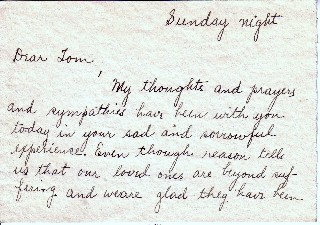 Sunday night
Dear Tom,
My thoughts and prayers
and sympathies have been with you
today in your sad and sorrowful
experience. Even though reason tells
us that our loved ones are beyond suf-
fering and weare glad they have been